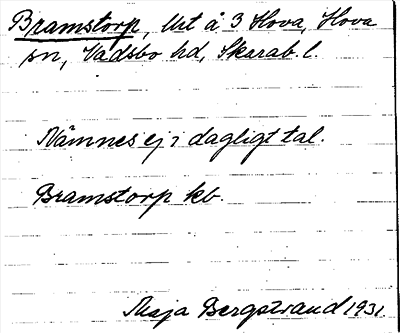 Bramstorp, Urt å 3 Hova, Hova
sn, Vadsbo hd, Skarab. l.
Nämnes ej i dagligt tal.
Bramstorp kb.
Maja Bergstrand 1931.